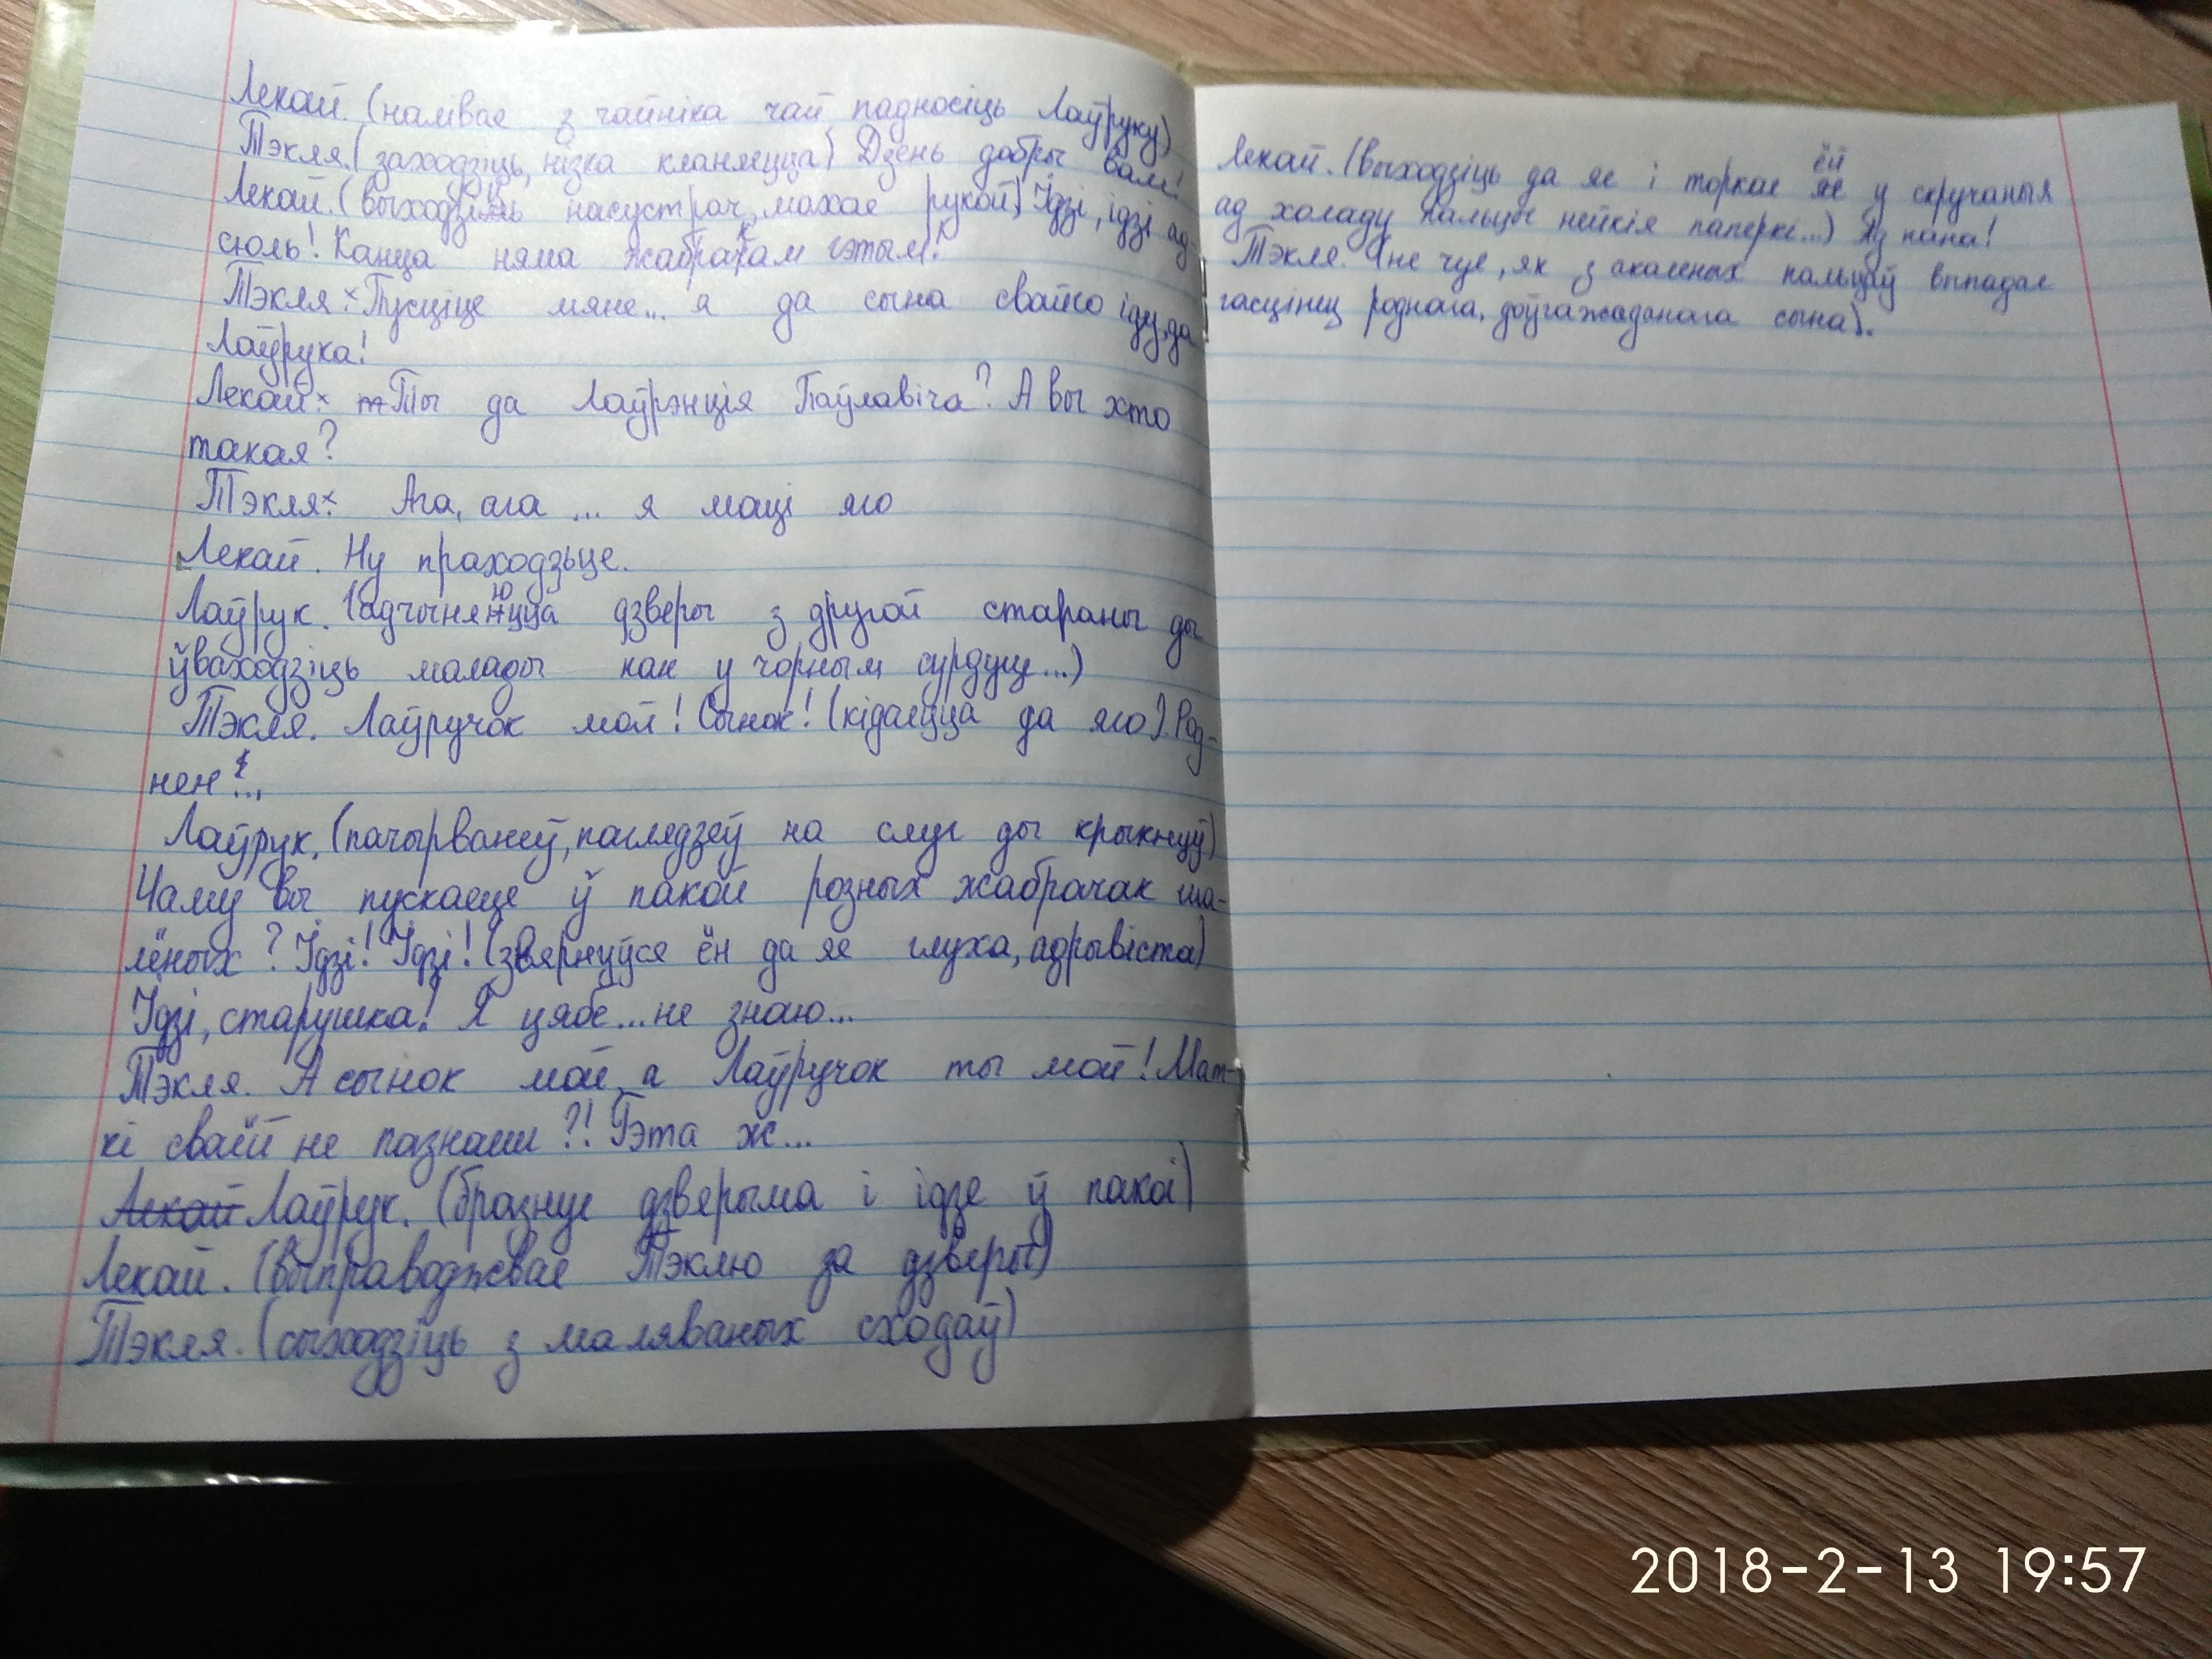 Лекай. (налівае з чайніка чай падносіць Лаўруку)
Тэкля. (заходзіць, нізка кланяецца) Дзень добры вам!
Лекай. (выходзіць насустрач, махае рукой) Ідзі, ідзі ад-
сюль! Канца няма жабракам гэтым!
Тэкля: Пусціце мяне... я да сына свайго іду, да
Лаўрука!
Лекай: Ты да Лаўрэнція Паўлавіча? А вы хто
такая?
Тэкля: Ага, ага ... я маці яго
Лекай. Ну праходзьце.
Лаўрук. (адчыняюцца дзверы з другой стараны ды
ўваходзіць малады пан у чорным сурдуце...)
Тэкля. Лаўручок мой! Сынок! (кідаецца да яго). Род-
нен!..
Лаўрук. (пачырванеў, паглядзеў на слуг ды крыкнуў)
Чаму вы пускаеце ў пакой розных жабрачак ша-
лёных? Ідзі! Ідзі! (звярнуўся ён да яе глуха, адрывіста)
Ідзі, старушка! Я цябе... не знаю...
Тэкля. А сынок мой, а Лаўручок ты мой! Мат-
кі сваёй не пазнаеш?! Гэта ж...
Лекай Лаўрук. (бразнуе дзвярыма і ідзе ў пакоі)
Лекай. (выправаджвае Тэклю за дзверы)
Тэкля. (сыходзіць з маляваных сходаў)
Лекай. (выходзіць да яе і торкае ёй у скручаныя
ад холаду пальцы нейкія паперкі...) Ад пана!
Тэкля. (не чуе, як з акаленых пальцаў выпадае
гасцінец роднага, доўгажаданага сына).
2018-2-13 19:57